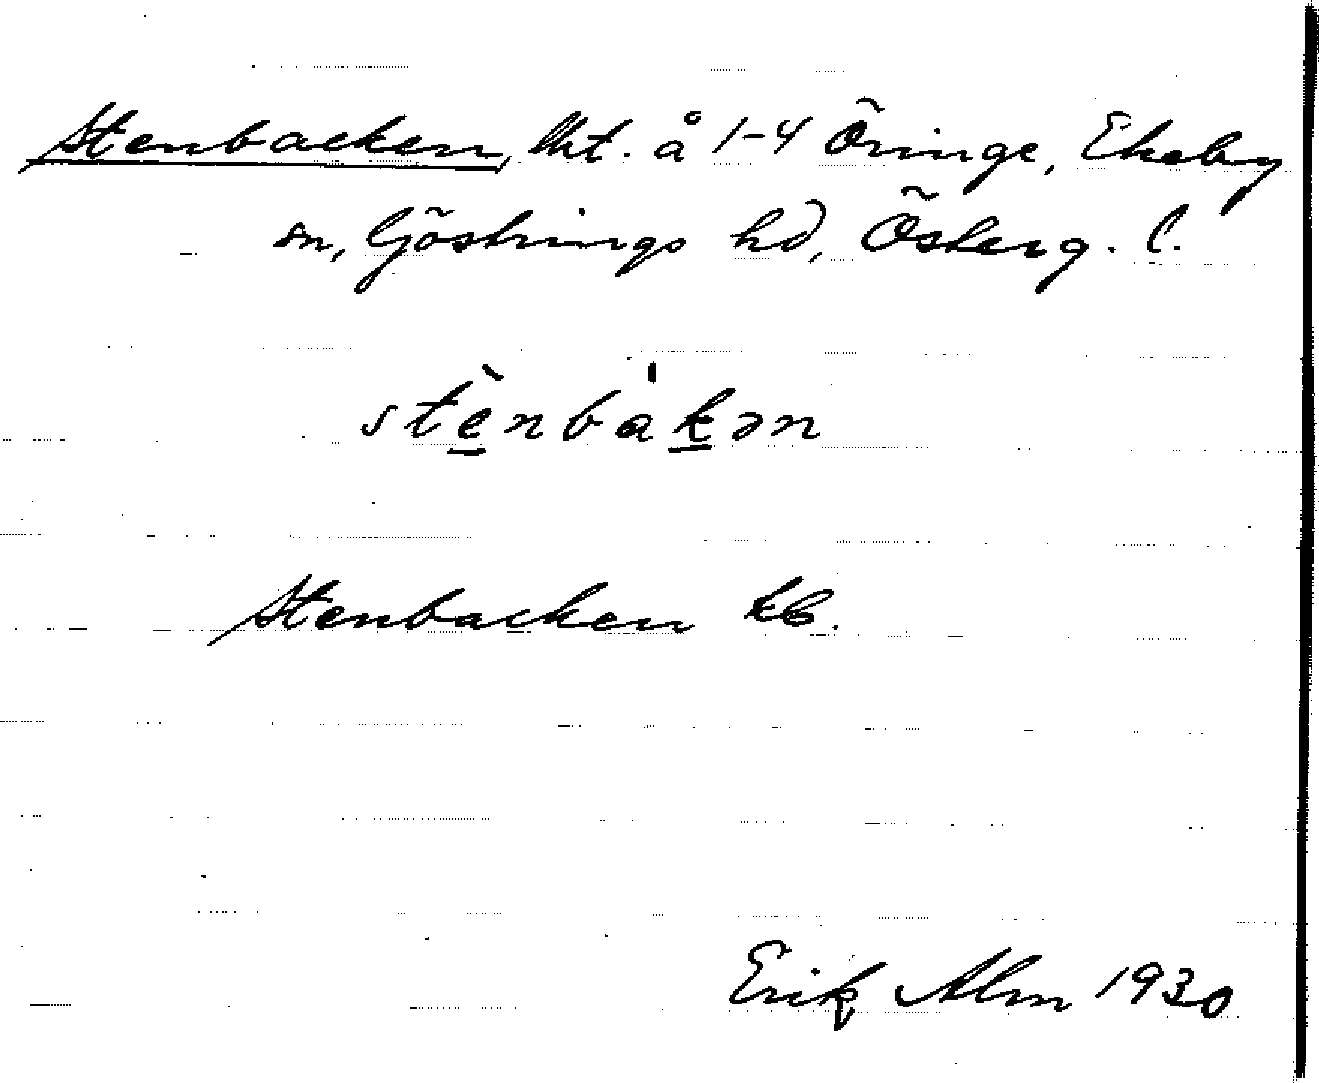 Stenbacken, lht. å 1-4 Öringe, Ekeby
sn, Göstrings hd, Österg. l.
stè̱nbáḵən
Stenbacken kb.
Erik Alm 1930